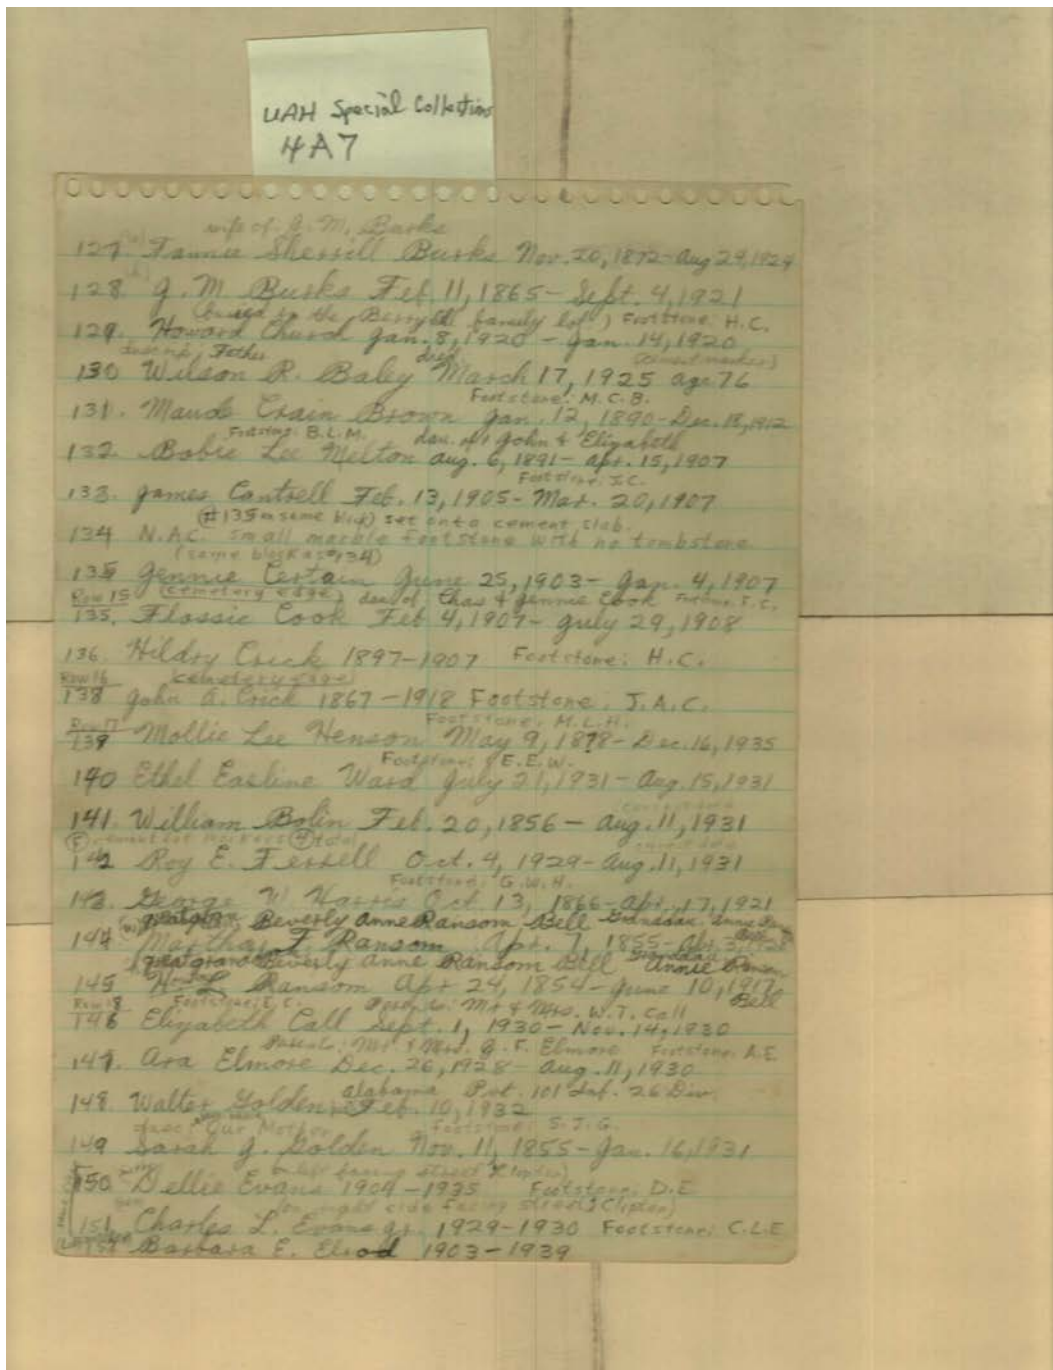 UAH Special Collections
4A7
wife of G. M. Burks
127 Fannie Sherrill Burks Nov. 20, 1872 - Aug 29, 1924
128 G. M Burks Feb. 11, 1865 - Sept. 4, 1921
(buried in the Berryhill family lot) Footstone: H.C.
129. Howard Church Jan. 8, 1920 - Jan. 14, 1920
Father died (cement marker)
130 Wilson R. Baley March 17, 1925 age 76
Footstone: M.C.B.
131. Maude Crain Brown Jan. 12, 1890 - Dec. 18, 1912
Footstone: B.L.M. dau. of John & Elizabeth
132. Bobie Lee Melton Aug. 6, 1891 - Apr. 15, 1907
Footstone: J.C.
133. James Cantrell Feb. 13, 1905 - Mar. 20, 1907
(#135 on same blk) set onto cement slab.
134 N.A.C. small marble footstone with no tombstone
(same block as #134)
135 Jennie Certain June 25, 1903 - Jan. 4, 1907
Row 15 (cemetery edge) dau of Chas & Jennie Cook Footstone: F.C.
135. Flossie Cook Feb 4, 1907 - July 29, 1908
136. Hildry Crick 1897-1907 Footstone: H.C.
Row 16 cemetery edge
138 John A. Crick 1867-1918 Footstone: J.A.C.
Footstone: M.L.H.
Row 17
139 Mollie Lee Henson May 9, 1878 - Dec. 16, 1935
Footstone: E.E.W.
140 Ethel Easline Ward July 21, 1931 - Aug. 15, 1931
141. William Bolin Feb. 20, 1856 - Aug. 11, 1931
142 Roy E. Ferrell Oct. 4, 1929 - Aug. 11, 1931
Footstone: G.W.H.
143. George W Harris Oct. 13, 1866 - Apr. 17, 1921
Beverly Anne Ransom Bell Granddau Annie
144 Martha F. Ransom Apr. 7, 1855 - Apr. 3, 1928
Beverly Anne Ransom Bell Granddau Annie Ransom
145 L. Ransom Apr 24, 1854 - June 10, 1917 Bell
Row 18 Footstone: E.C. Parents: Mr & Mrs. W.T. Call
146 Elizabeth Call Sept. 1, 1930 - Nov. 14, 1930
Parents: Mr. & Mrs. G. F. Elmore Footstone: A.E.
147. Ara Elmore Dec. 26, 1928 - Aug. 11, 1930
Alabama Pvt. 101 Inf. 26 Div.
148. Walter Golden, Feb. 10, 1932
Our Mother Footstone: S.J.G.
149 Sarah J. Golden Nov. 11, 1855 - Jan. 16, 1931
facing street (Clopton)
150 Dellie Evans 1904-1935 Footstone: D.E
(on right side facing street, Clipton)
151 Charles L. Evans Jr. 1929-1930 Footstone: C.L.E
Barbara E. Elrod 1903-1939